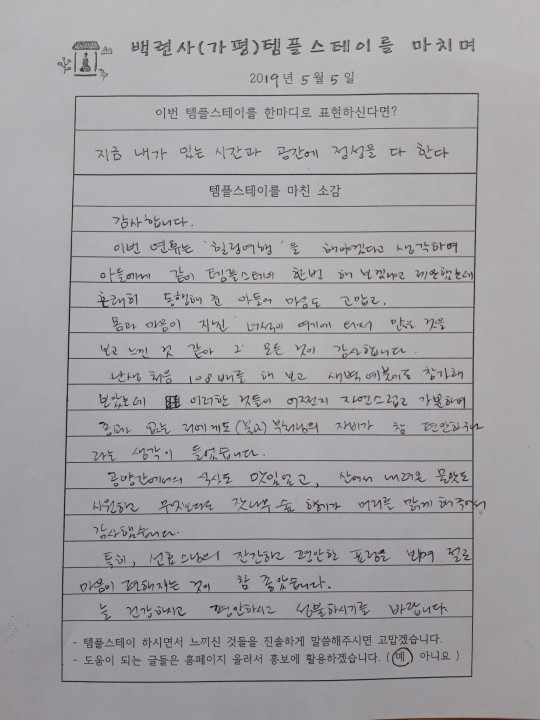 백련사(가평)템플스테이를 마치며
2019년 5월 5일
이번 템플스테이를 한마디로 표현하신다면?
지금 내가 있는 시간과 공간에 정성을 다 한다
템플스테이를 마친 소감
감사합니다.
이번 연휴는 '힐링여행'을 해야겠다고 생각하여
아들에게 같이 템플스테이 한번 해 보겠냐고 제안했는데
흔쾌히 동행해 준 아들의 마음도 고맙고,
몸과 마음이 지친 여기에 와서 많은 것을
보고 느낀 것 같아 그 모든 것이 감사합니다.
난생 처음 108배를 해 보고 새벽예불에도 참가해
보았는데 이러한 것들이 어쩐지 자연스럽고 가벼하여
종교가 없는 저에게도 (불교) 부처님의 자비가 참 편안하구나
라는 생각이 들었습니다.
공양간에서의 식사도 맛있었고, 산에서 내려온 물맛도
시원하고 무엇보다도 잣나무 숲 향기가 머리를 맑게 해주어서
감사했습니다.
특히, 선효스님의 잔잔하고 편안한 표정을 뵈며 절로
마음이 편해지는 것이 참 좋았습니다.
늘 건강하시고 평안하시고 성불하시기를 바랍니다
- 템플스테이 하시면서 느끼신 것들을 진솔하게 말씀해주시면 고맙겠습니다.
- 도움이 되는 글들은 홈페이지 올려서 홍보에 활용하겠습니다. ( 예, 아니요 )